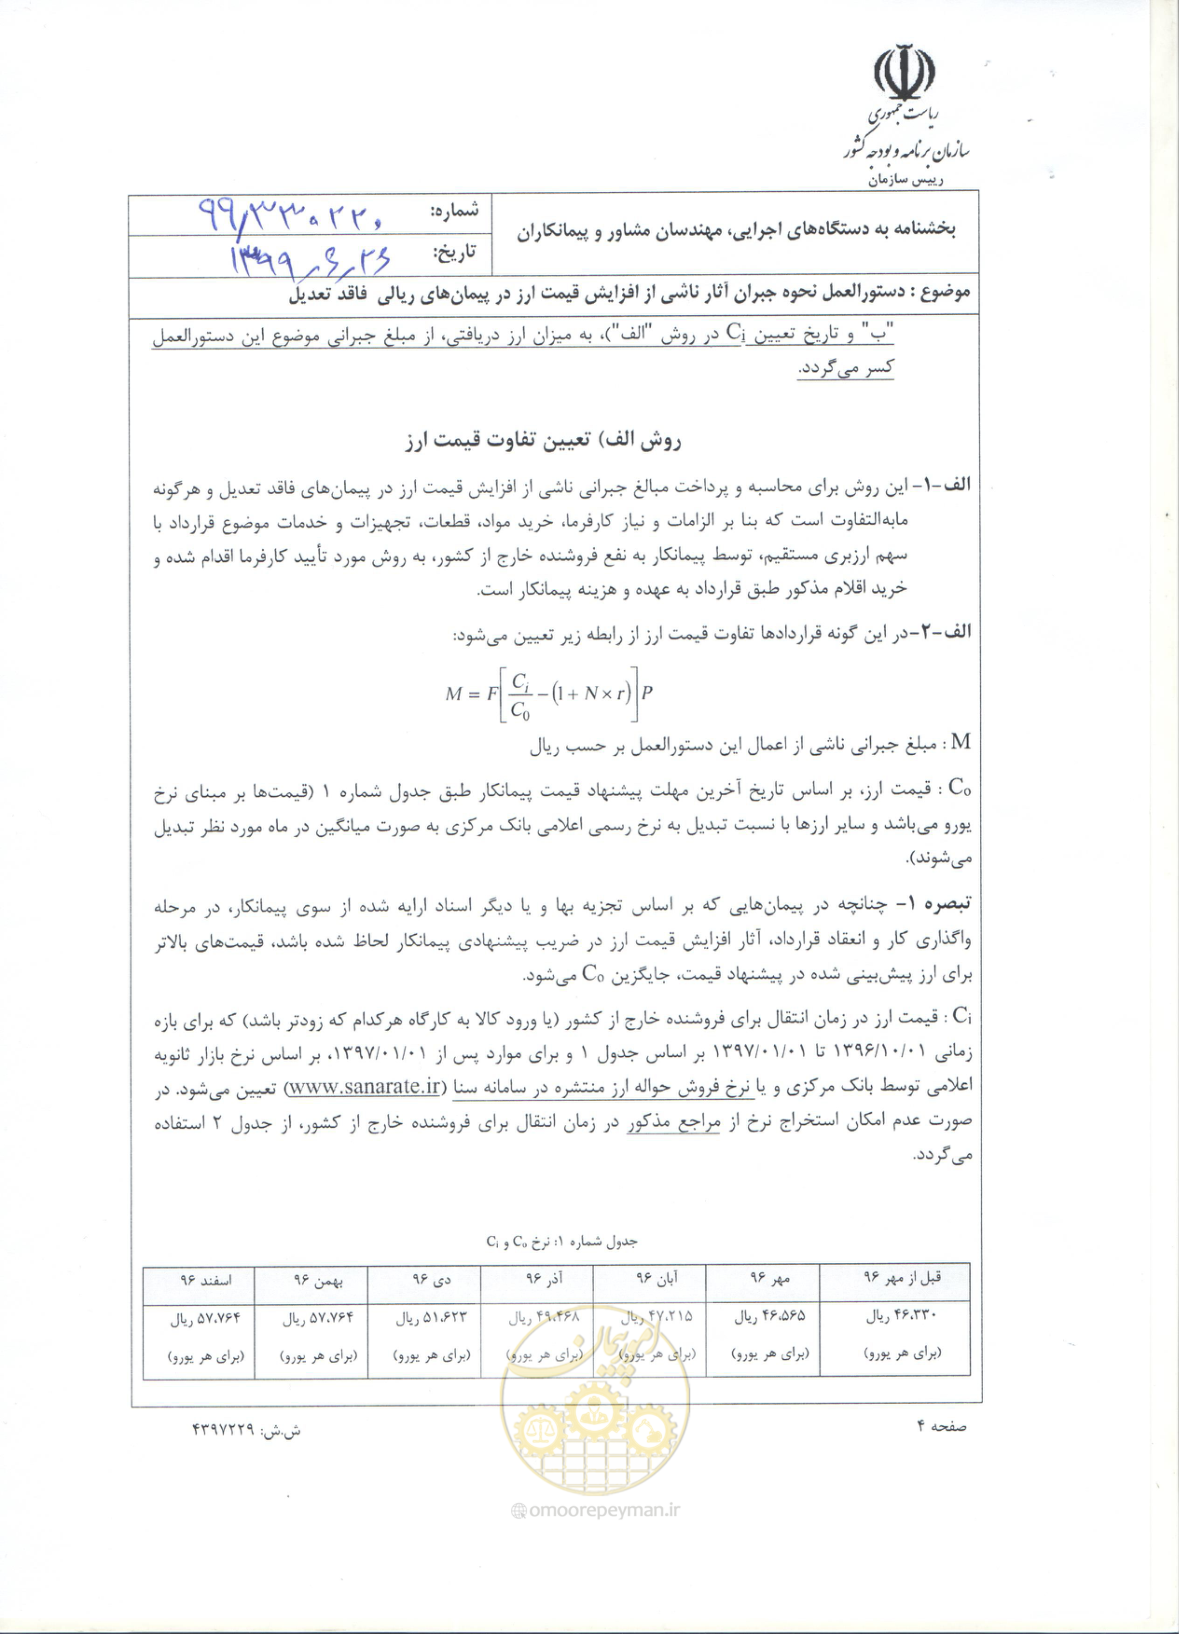 ریاست جمهوری
سازمان برنامه و بودجه کشور
رییس سازمان
بخشنامه به دستگاه‌های اجرایی، مهندسان مشاور و پیمانکاران
شماره: ۹۹/۳۳۰۲۲۰
تاریخ: ۱۳۹۹/۶/۲۶
موضوع : دستورالعمل نحوه جبران آثار ناشی از افزایش قیمت ارز در پیمان‌های ریالی فاقد تعدیل
"ب" و تاریخ تعیین Ci در روش "الف")، به میزان ارز دریافتی، از مبلغ جبرانی موضوع این دستورالعمل
کسر می‌گردد.
روش الف) تعیین تفاوت قیمت ارز
الف-۱- این روش برای محاسبه و پرداخت مبالغ جبرانی ناشی از افزایش قیمت ارز در پیمان‌های فاقد تعدیل و هرگونه
مابه‌التفاوت است که بنا بر الزامات و نیاز کارفرما، خرید مواد، قطعات، تجهیزات و خدمات موضوع قرارداد با
سهم ارزبری مستقیم، توسط پیمانکار به نفع فروشنده خارج از کشور، به روش مورد تأیید کارفرما اقدام شده و
خرید اقلام مذکور طبق قرارداد به عهده و هزینه پیمانکار است.
الف-۲-در این گونه قراردادها تفاوت قیمت ارز از رابطه زیر تعیین می‌شود:
M = F[Ci/C0 − (1 + N × r)]P
M : مبلغ جبرانی ناشی از اعمال این دستورالعمل بر حسب ریال
C۰ : قیمت ارز، بر اساس تاریخ آخرین مهلت پیشنهاد قیمت پیمانکار طبق جدول شماره ۱ (قیمت‌ها بر مبنای نرخ
یورو می‌باشد و سایر ارزها با نسبت تبدیل به نرخ رسمی اعلامی بانک مرکزی به صورت میانگین در ماه مورد نظر تبدیل
می‌شوند).
تبصره ۱- چنانچه در پیمان‌هایی که بر اساس تجزیه بها و یا دیگر اسناد ارایه شده از سوی پیمانکار، در مرحله
واگذاری کار و انعقاد قرارداد، آثار افزایش قیمت ارز در ضریب پیشنهادی پیمانکار لحاظ شده باشد، قیمت‌های بالاتر
برای ارز پیش‌بینی شده در پیشنهاد قیمت، جایگزین C۰ می‌شود.
Ci : قیمت ارز در زمان انتقال برای فروشنده خارج از کشور (یا ورود کالا به کارگاه هرکدام که زودتر باشد) که برای بازه
زمانی ۱۳۹۶/۱۰/۰۱ تا ۱۳۹۷/۰۱/۰۱ بر اساس جدول ۱ و برای موارد پس از ۱۳۹۷/۰۱/۰۱، بر اساس نرخ بازار ثانویه
اعلامی توسط بانک مرکزی و یا نرخ فروش حواله ارز منتشره در سامانه سنا (www.sanarate.ir) تعیین می‌شود. در
صورت عدم امکان استخراج نرخ از مراجع مذکور در زمان انتقال برای فروشنده خارج از کشور، از جدول ۲ استفاده
می‌گردد.
جدول شماره ۱: نرخ C۰ و Ci
قبل از مهر ۹۶ مهر ۹۶ آبان ۹۶ آذر ۹۶ دی ۹۶ بهمن ۹۶ اسفند ۹۶
۴۶،۳۳۰ ریال ۴۶،۵۶۵ ریال ۴۷،۲۱۵ ریال ۴۹،۴۶۸ ریال ۵۱،۶۲۳ ریال ۵۷،۷۶۴ ریال ۵۷،۷۶۴ ریال
(برای هر یورو) (برای هر یورو) (برای هر یورو) (برای هر یورو) (برای هر یورو) (برای هر یورو) (برای هر یورو)
صفحه ۴
ش.ش: ۴۳۹۷۲۲۹
امور پیمان
omoorepeyman.ir